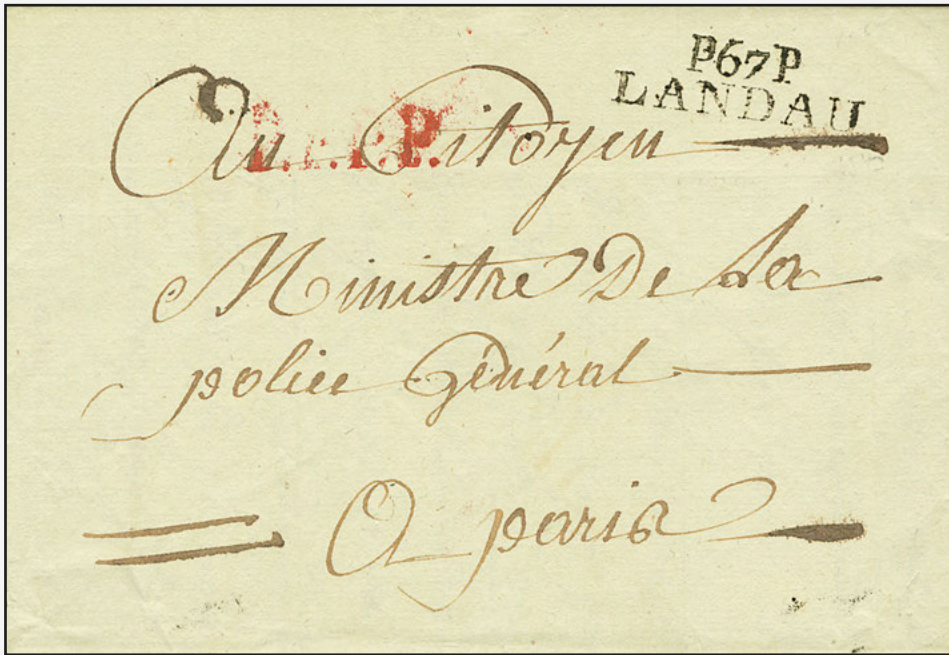 P67P
LANDAU
P.P.P.P.
Au Citoyen
Ministre De La
police Général
A paris